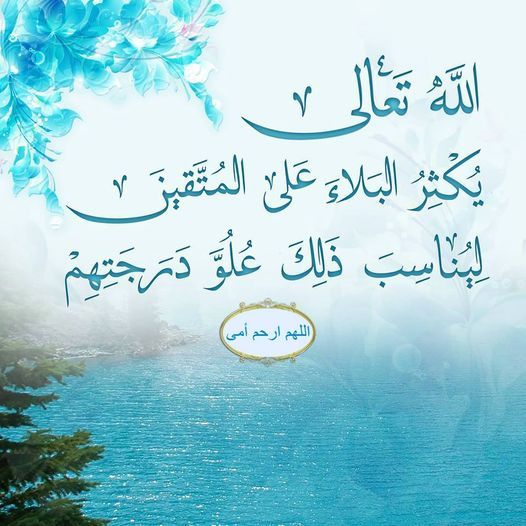 اللَّهُ تَعَالى
يُكْثِرُ البَلاءَ عَلى المُتَّقينَ
لِيُناسِبَ ذَلِكَ عُلُوَّ دَرَجَتِهِمْ
اللهم ارحم أمى